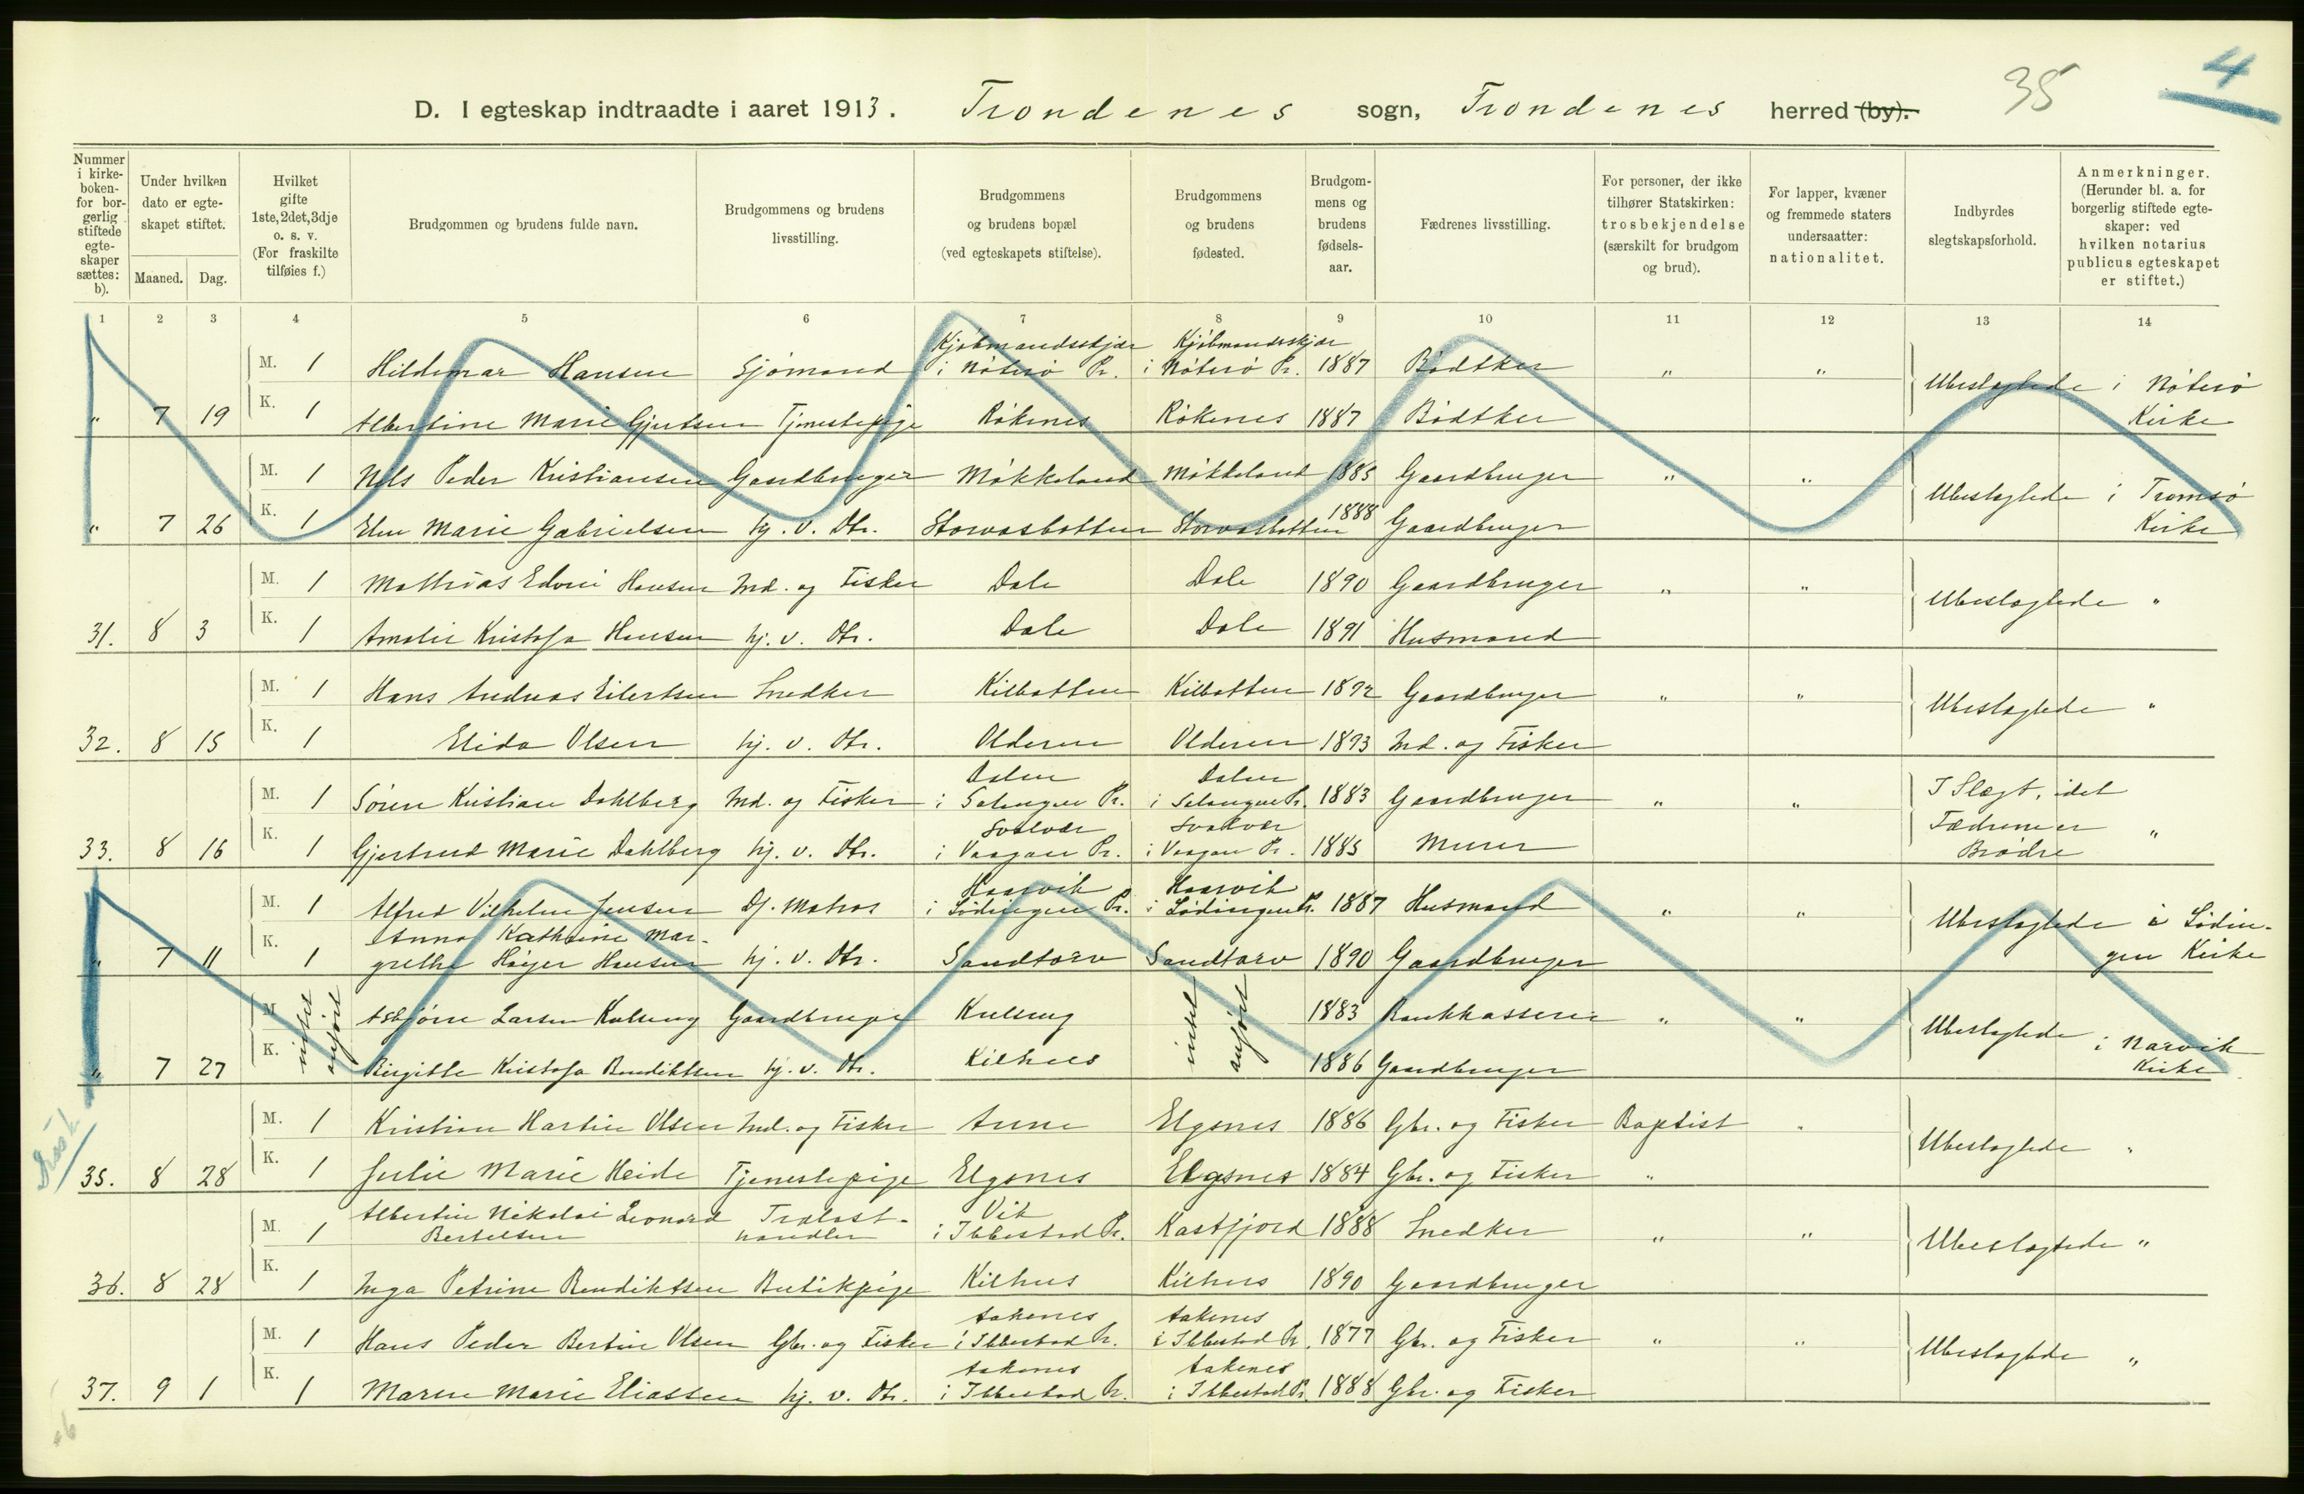 D. I egteskap indtraadte i aaret 1913. Trondenes sogn, Trondenes herred (by). 35 4
Nummer i kirkeboken- for borgerlig stiftede egteskaper sættes: b).
Under hvilken dato er egteskapet stiftet.
Maaned. Dag.
Hvilket gifte 1ste, 2det, 3dje o. s. v. (For fraskilte tilføies f.)
Brudgommen og brudens fulde navn.
Brudgommens og brudens livsstilling.
Brudgommens og brudens bopæl (ved egteskapets stiftelse).
Brudgommens og brudens fødested.
Brudgommens og brudens fødselsaar.
Fædrenes livsstilling.
For personer, der ikke tilhører Statskirken: trosbekjendelse (særskilt for brudgom og brud).
For lapper, kvæner og fremmede staters undersaatter: nationalitet.
Indbyrdes slegtskapsforhold.
Anmerkninger. (Herunder bl. a. for borgerlig stiftede egteskaper: ved hvilken notarius publicus egteskapet er stiftet.)
1 2 3 4 5 6 7 8 9 10 11 12 13 14
M. 1 Hildemar Hansen Sjømand Kjøbmandsskjær i Nøterø Pr. Kjøbmandsskjær i Nøterø Pr. 1887 Bødtker " " Ubeslægtede i Nøterø Kirke
" 7 19 K. 1 Albertine Marie Gjertsen Tjenestepige Røkenes Røkenes 1887 Bødtker
M. 1 Nils Peder Kristiansen Gaardbruger Møkkeland Møkkeland 1885 Gaardbruger " " Ubeslægtede i Tromsø Kirke
" 7 26 K. 1 Elen Marie Gabrielsen hj. v. Dtr. Storvasbotten Storvasbotten 1888 Gaardbruger
M. 1 Mathias Edvin Hansen Ind. og Fisker Dale Dale 1890 Gaardbruger " " Ubeslægtede "
31. 8 3 K. 1 Amalie Kristofa Hansen hj. v. Dtr. Dale Dale 1891 Husmand
M. 1 Hans Andreas Eilertsen Snedker Kilbotten Kilbotten 1892 Gaardbruger " " Ubeslægtede "
32. 8 15 K. 1 Elida Olsen hj. v. Dtr. Olderen Olderen 1893 Ind. og Fisker
M. 1 Søren Kristian Dahlberg Ind. og Fisker Dalen i Salangen Pr. Dalen i Salangen Pr. 1883 Gaardbruger " " I Slægt, idet Fædrene er Brødre "
33. 8 16 K. 1 Gjertrud Marie Dahlberg hj. v. Dtr. Svolvær i Vaagan Pr. Svolvær i Vaagan Pr. 1885 Murer
M. 1 Alfred Vilhelm Jensen Dj. Matros Haarvik i Lødingen Pr. Haarvik i Lødingen Pr. 1887 Husmand " " Ubeslægtede i Lødingen Kirke
" 7 11 K. 1 Anna Kathrine Margrethe Høyer Hansen hj. v. Dtr. Sandtorv Sandtorv 1890 Gaardbruger
M. intet anført Asbjørn Larsen Kulseng Gaardbruger Kulseng intet anført 1883 Bankkasserer " " Ubeslægtede i Narvik Kirke
" 7 27 K. Birgitte Kristofa Bendiktsen hj. v. Dtr. Kilhus 1886 Gaardbruger
M. 1 Kristian Hartvin Olsen Ind. og Fisker Aune Elgsnes 1886 Gbr. og Fisker Baptist " Ubeslægtede "
35. 8 28 K. 1 Julie Marie Heide Tjenestepige Elgsnes Elgsnes 1884 Gbr. og Fisker "
M. 1 Albertin Nikolai Leonard Bertelsen Trælasthandler Vik i Ibbestad Pr. Kastfjord 1888 Snedker " " Ubeslægtede "
36. 8 28 K. 1 Inga Petrine Bendiktsen Butikpige Kilhus Kilhus 1890 Gaardbruger
M. 1 Hans Peder Bertin Olsen Gbr. og Fisker Aakenes i Ibbestad Pr. Aakenes i Ibbestad Pr. 1877 Gbr. og Fisker " " Ubeslægtede "
37. 9 1 K. 1 Maren Marie Eliassen hj. v. Dtr. Aakenes i Ibbestad Pr. Aakenes i Ibbestad Pr. 1888 Gbr. og Fisker